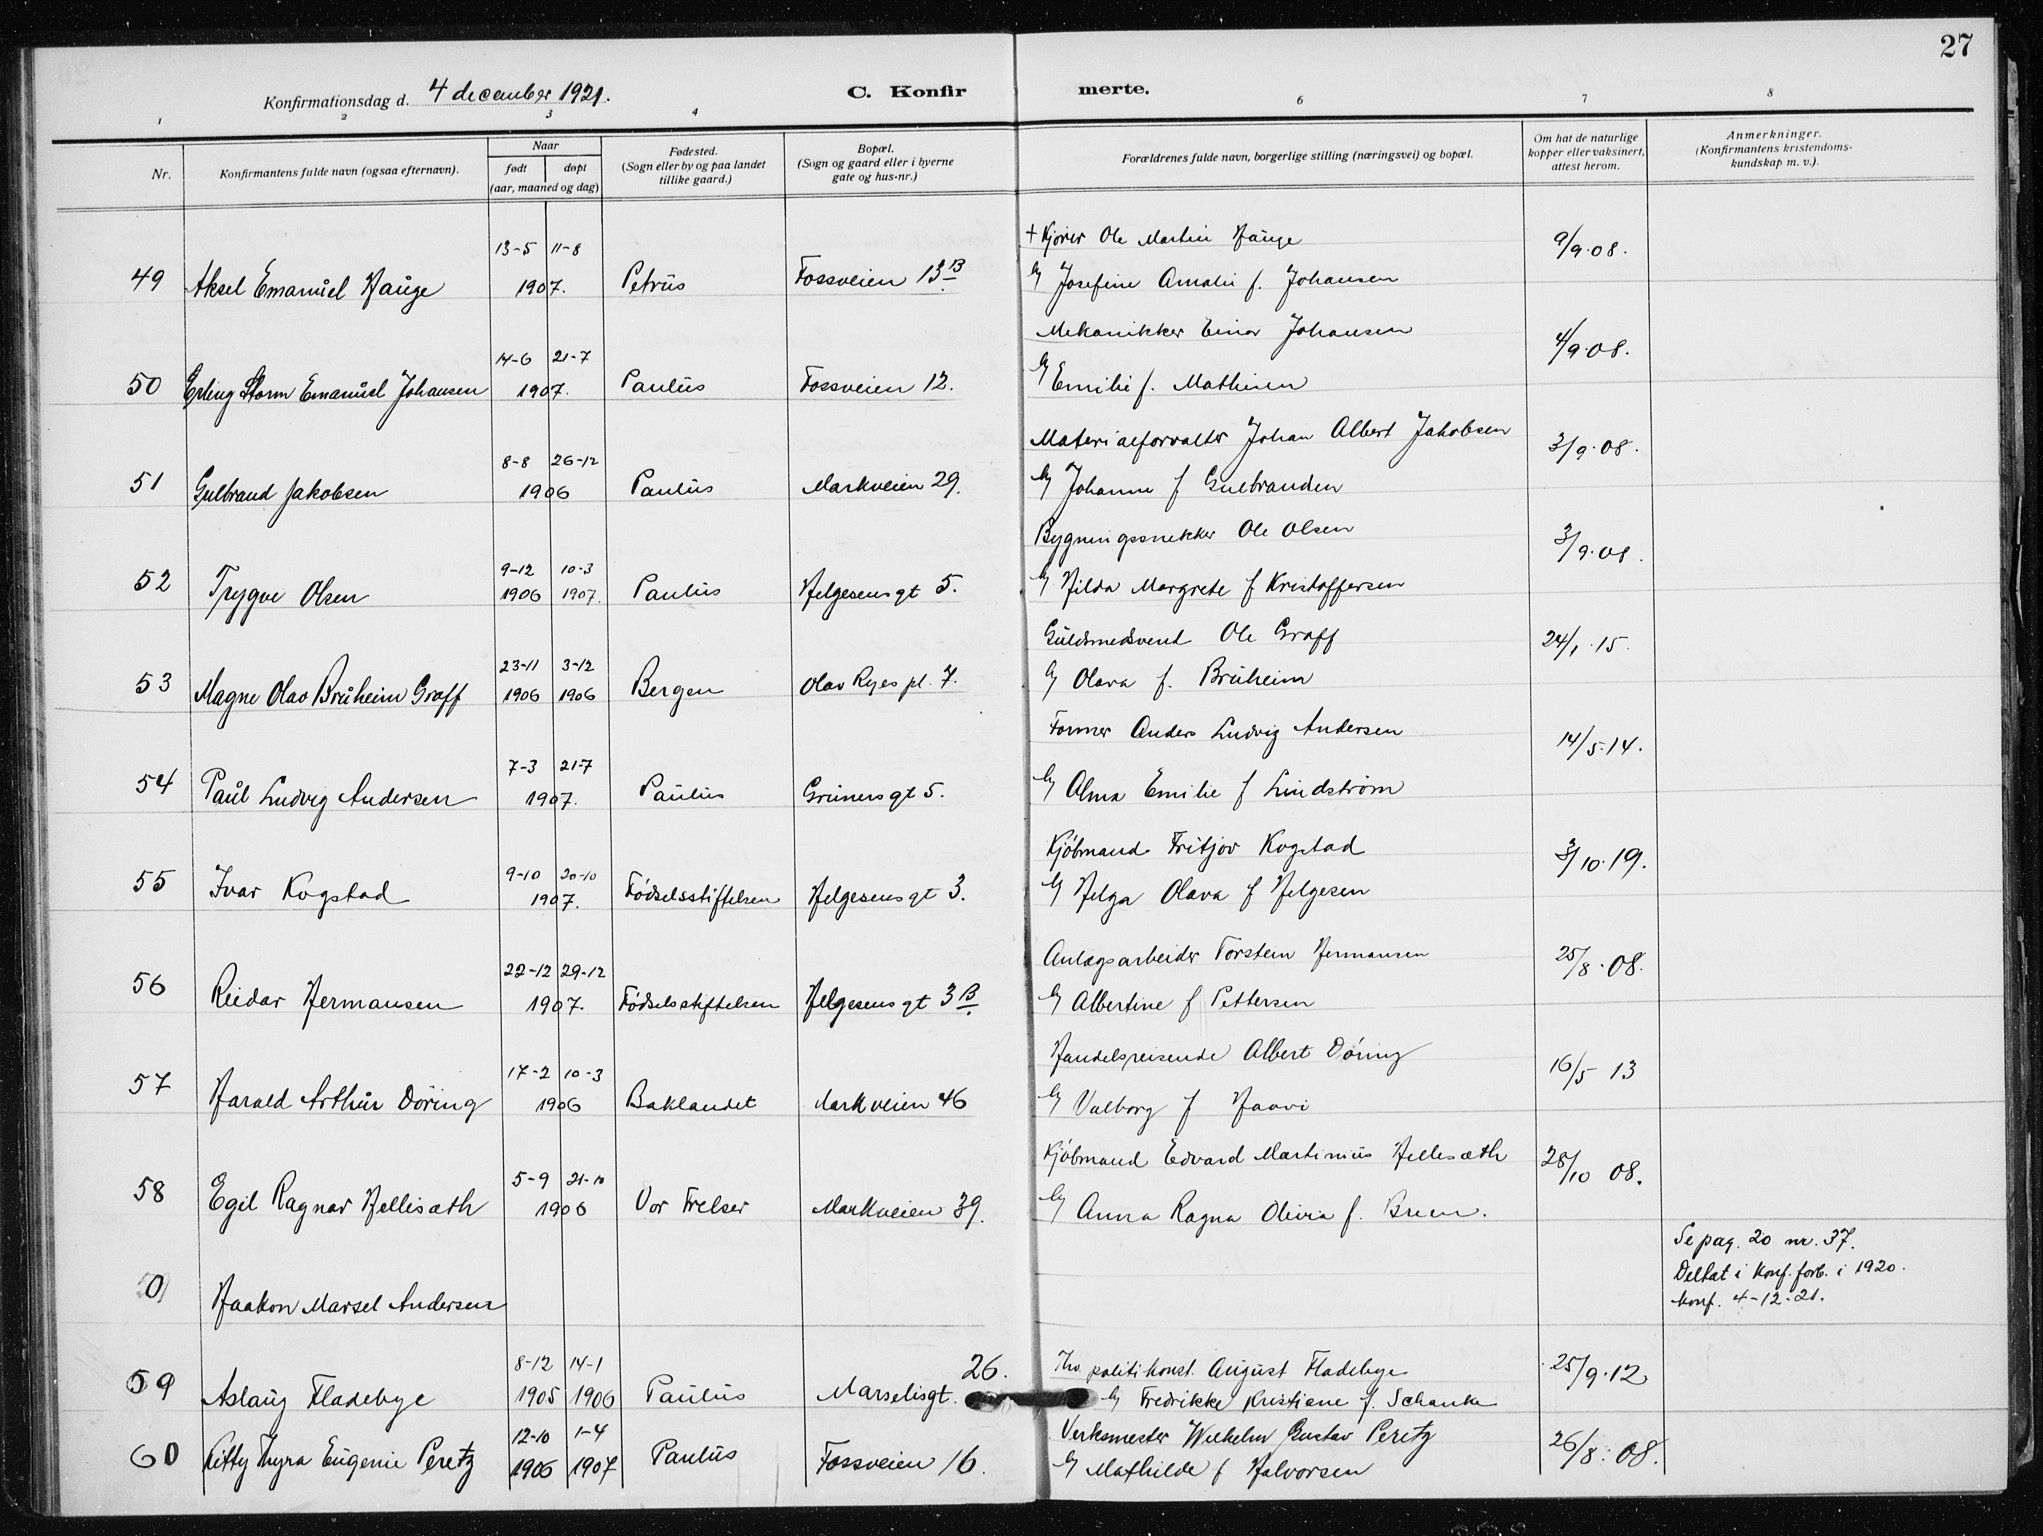 27
Konfirmationsdag d. 4 december 1921.
C. Konfirmerte.
1 2 3 4 6 7 8
Nr.
Konfirmantens fulde navn (ogsaa efternavn).
Naar
født døpt
(aar, maaned og dag)
Fødested.
(Sogn eller by og paa landet
tillike gaard.)
Bopæl.
(Sogn og gaard eller i byerne
gate og hus-nr.)
Forældrenes fulde navn, borgerlige stilling (næringsvei) og bopæl.
Om hat de naturlige
kopper eller vaksinert,
attest herom.
Anmerkninger.
(Konfirmantens kristendoms-
kundskap m. v.).
13-5 11-8 + Kjører Ole Martin Hauge 9/9.08.
49 Aksel Emanuel Hauge 1907. Petrus Fossveien 13 B. Og Josefine Amalie f. Johansen
14-6 21-7 Mekanikker Einar Johansen 4/9.08.
50 Erling Storm Emanuel Johansen 1907. Paulus Fossveien 12. Og Emilie f. Mathisen
8-8 26-12 Materialforvalter Johan Albert Jakobsen 3/9.08.
51 Gulbrand Jakobsen 1906 Paulus Markveien 29. Og Johanne f Gulbrandsen
9-12 10-3 Bygningssnekker Ole Olsen 3/9.08.
52 Trygve Olsen 1906 1907. Paulus Helgesensgt 5. Og Hilda Margrete f Kristoffersen
23-11 3-12 Guldsmedsvend Ole Graff 24/1.15.
53 Magne Olav Bruheim Graff 1906 1906 Bergen Olav Ryes pl. 7. Og Olava f. Bruheim
7-3 21-7 Former Anders Ludvig Andersen 14/5.14.
54 Paul Ludvig Andersen 1907. Paulus Grünersgt 5. Og Alma Emilie f Lindstrøm
9-10 20-10 Kjøbmand Fritjov Kogstad 3/10.19.
55 Ivar Kogstad 1907. Fødselsstiftelsen Helgesensgt 3. Og Helga Olava f Helgesen
22-12 29-12 Anlægsarbeider Torstein Hermansen 25/8.08.
56 Reidar Hermansen 1907. Fødselsstiftelsen Helgesensgt 3 B. Og Albertine f Pettersen
17-2 10-3 Handelsreisende Albert Döring 16/5 13
57 Harald Arthur Döring 1906 Baklandet Markveien 46 Og Valborg f Haavi
5-9 21-10 Kjøbmand Edvard Martinius Hellesæth 28/10 08.
58 Egil Ragnar Hellisæth 1906 Vor Frelser Markveien 39. Og Anna Ragna Olivia f. Bruen.
Se pag. 20 nr. 37.
Deltat i konf. forb. i 1920.
0 Haakon Marsel Andersen konf. 4-12-21.
8-12 14-1 26. Fhv. politikonst. August Fladebye 25/9.12
59 Aslaug Fladebye 1905 1906 Paulus Marselisgt. Og Fredrikke Kristiane f. Schanke
12-10 1-4 Verksmester Wilhelm Gustav Peretz 26/8.08.
60 Kitty Thyra Eugenie Peretz 1906 1907 Paulus Fossveien 16. Og Mathilde f Halvorsen